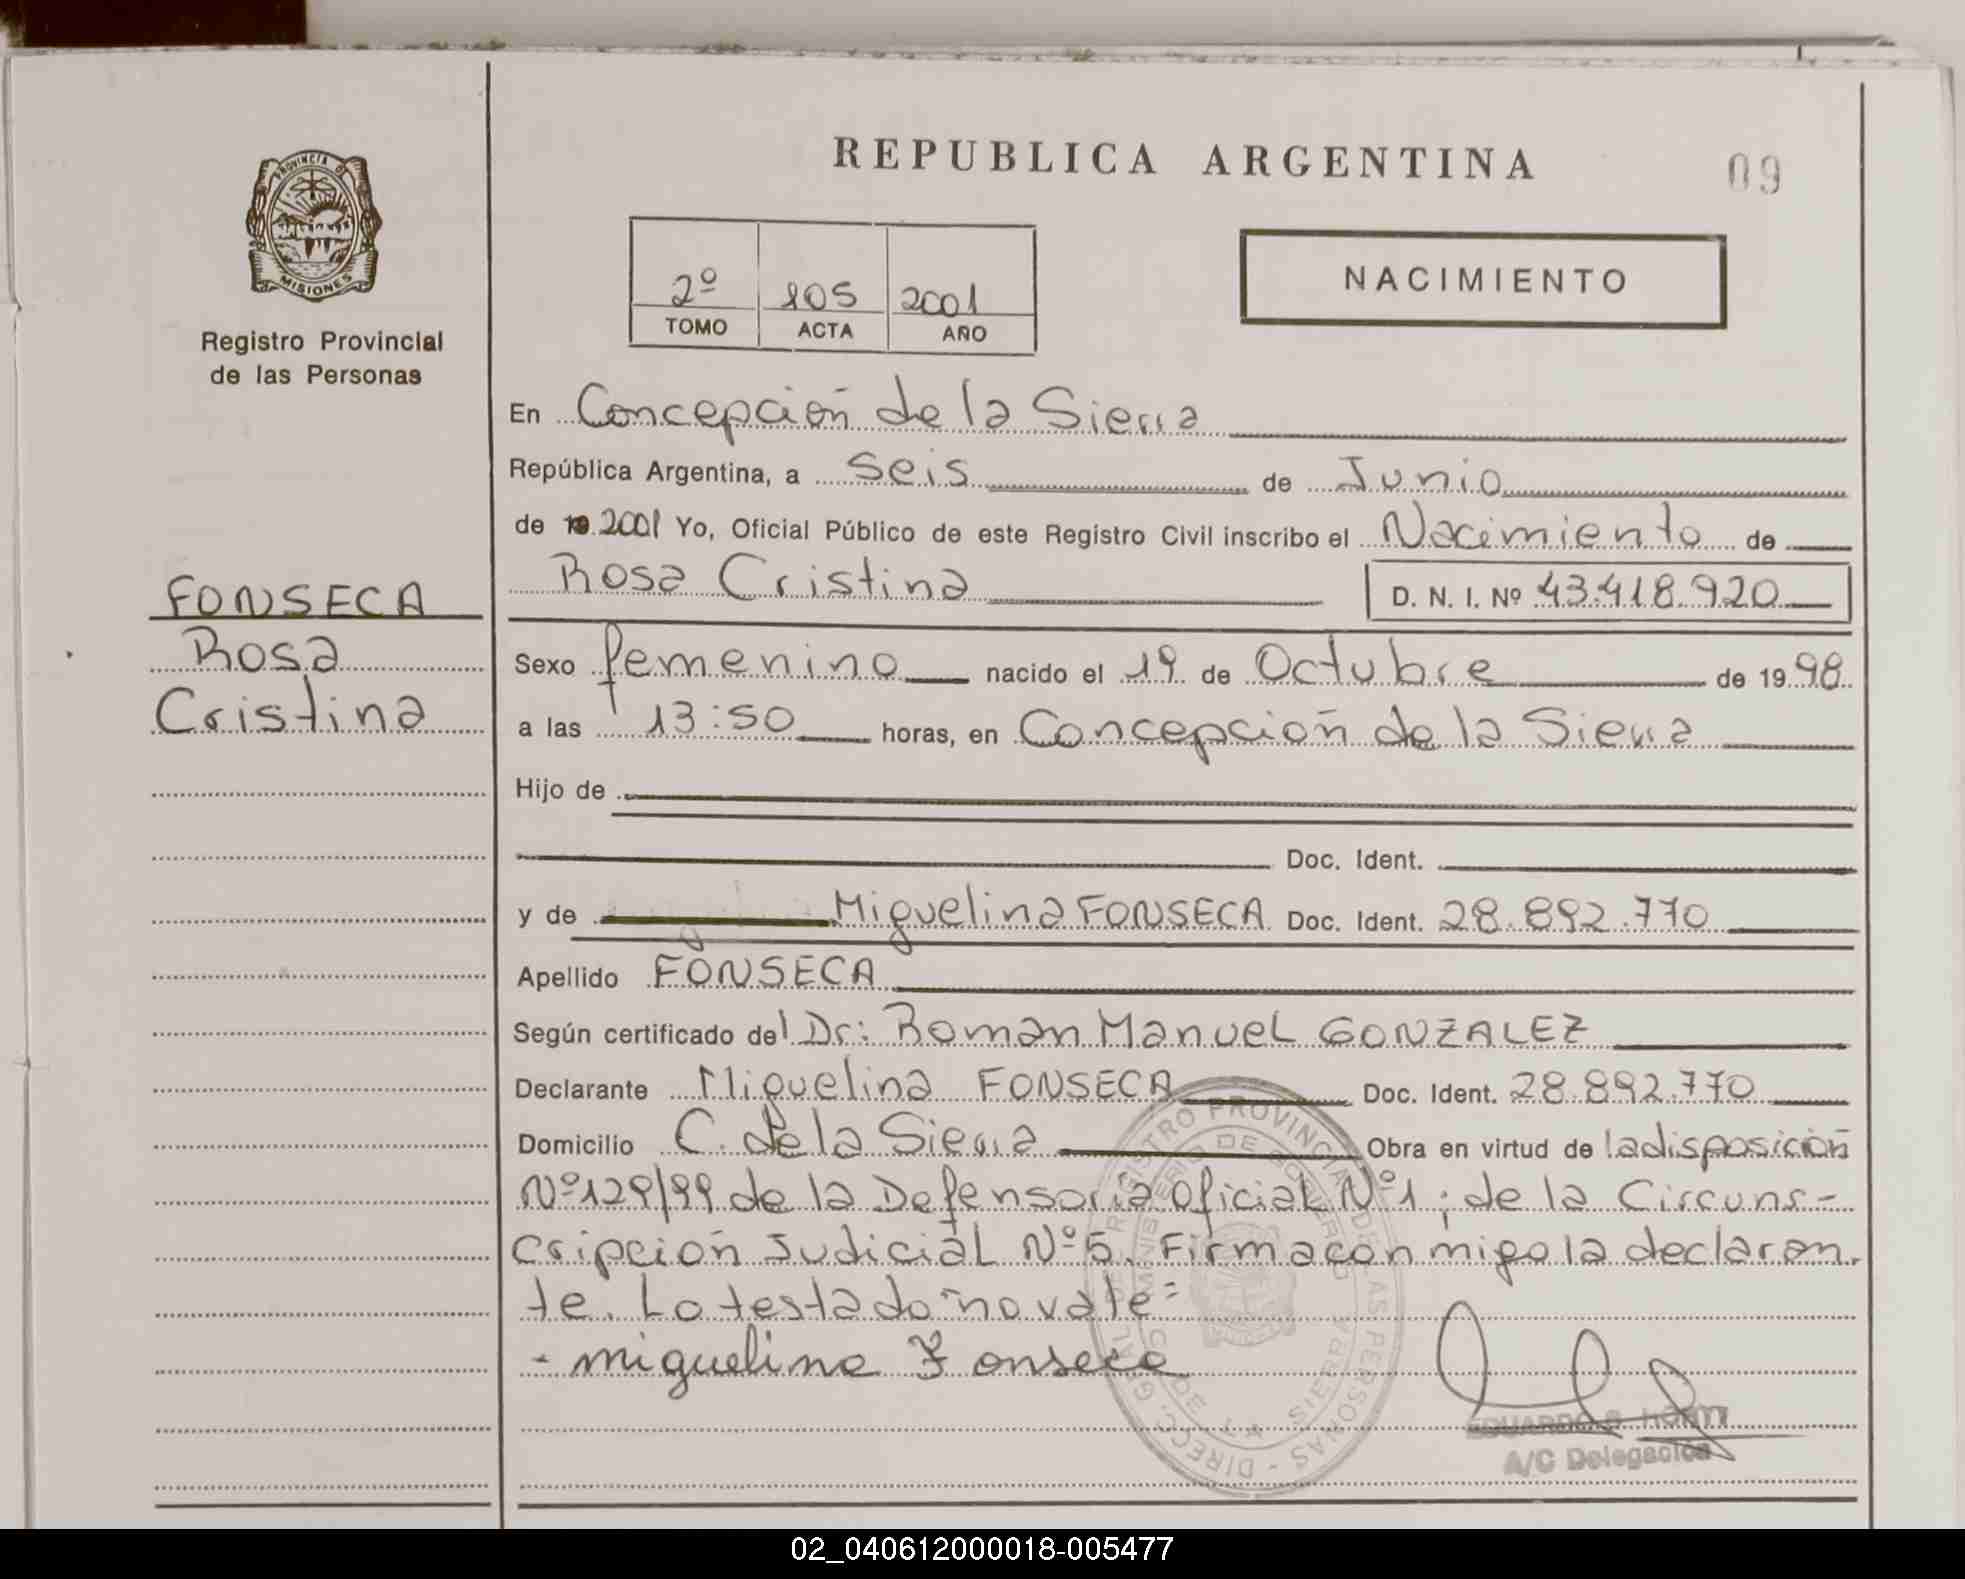 REPUBLICA ARGENTINA
09
PROVINCIA DE
MISIONES
Registro Provincial
de las Personas
2º 105 2001
TOMO ACTA AÑO
NACIMIENTO
En Concepción de la Sierra
República Argentina, a Seis de Junio
de 19 2001 Yo, Oficial Público de este Registro Civil inscribo el Nacimiento de
Rosa Cristina D. N. I. Nº 43.418.920
FONSECA
Rosa
Cristina
Sexo femenino nacido el 19 de Octubre de 19 98
a las 13:50 horas, en Concepción de la Sierra
Hijo de
Doc. Ident.
y de Miguelina FONSECA Doc. Ident. 28.892.770
Apellido FONSECA
Según certificado del Dr: Roman Manuel GONZALEZ
Declarante Miguelina FONSECA Doc. Ident. 28.892.770
Domicilio C. de la Sierra Obra en virtud de la disposición
Nº 129/99 de la Defensoría Oficial Nº 1; de la Circuns-
cripción Judicial Nº 5. Firma conmigo la declaran-
te. Lo testado no vale=
- miguelina Fonseca
DIRECC. GRAL. REGISTRO PROVINCIAL DE LAS PERSONAS
MINISTERIO DE GOBIERNO
C. DE LA SIERRA
EDUARDO
A/C Delegación
02_040612000018-005477